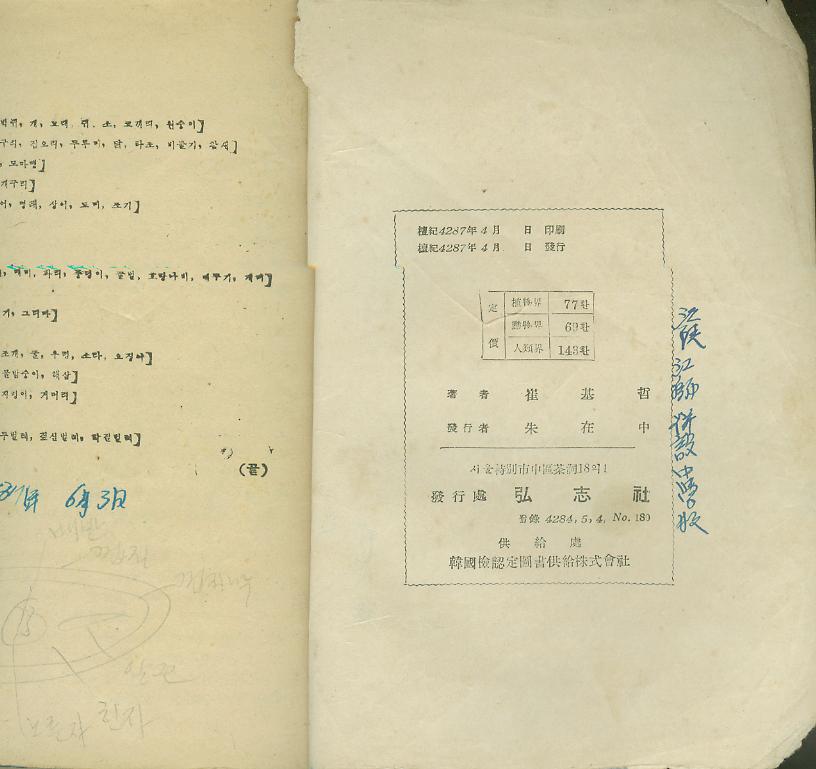 박쥐, 개, 고래, 쥐, 소, 코끼리, 원숭이]
구리, 집오리, 두루미, 닭, 타조, 비둘기, 참새]
도마뱀]
개구리]
어, 명태, 상어, 도미, 조기]
매미, 파리, 풍뎅이, 꿀벌, 호랑나비, 메뚜기, 개미]
기, 그리마]
조개, 굴, 우렁, 소라, 오징어]
꽃말숭이, 해삼]
지렁이, 거머리]
(끝)
年 6月 3日
檀紀4287年 4月 日 印刷
檀紀4287年 4月 日 發行
定價
植物界 77환
動物界 69환
人類界 143환
著者 崔基哲
發行者 朱在中
서울特別市中區茶洞18의1
發行處 弘志社
登錄 4284, 5, 4, No. 189
供給處
韓國檢認定圖書供給株式會社
江陵 江師 併設中學校